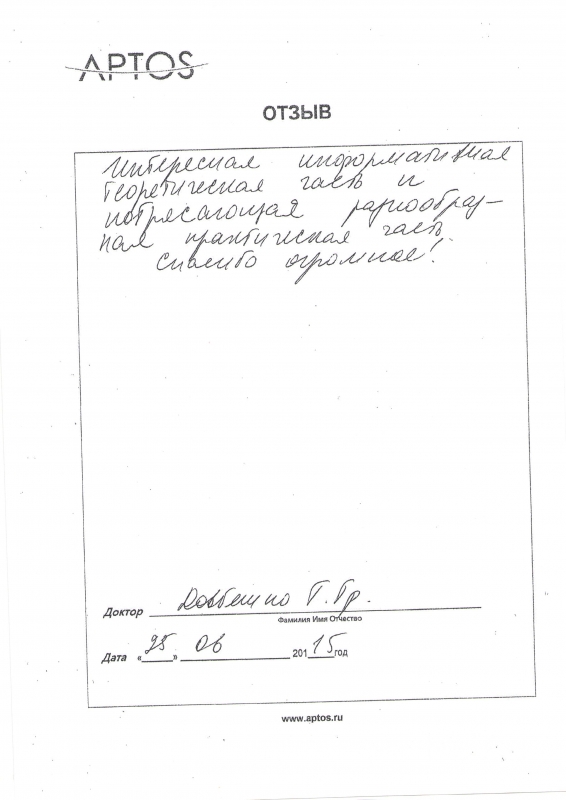 APTOS
ОТЗЫВ
Интересная информативная
теоретическая часть и
потрясающая разнообраз-
ная практическая часть
Спасибо огромное!
Доктор Довбешко Т. Гр.
Фамилия Имя Отчество
Дата «25» 06 2015 год
www.aptos.ru